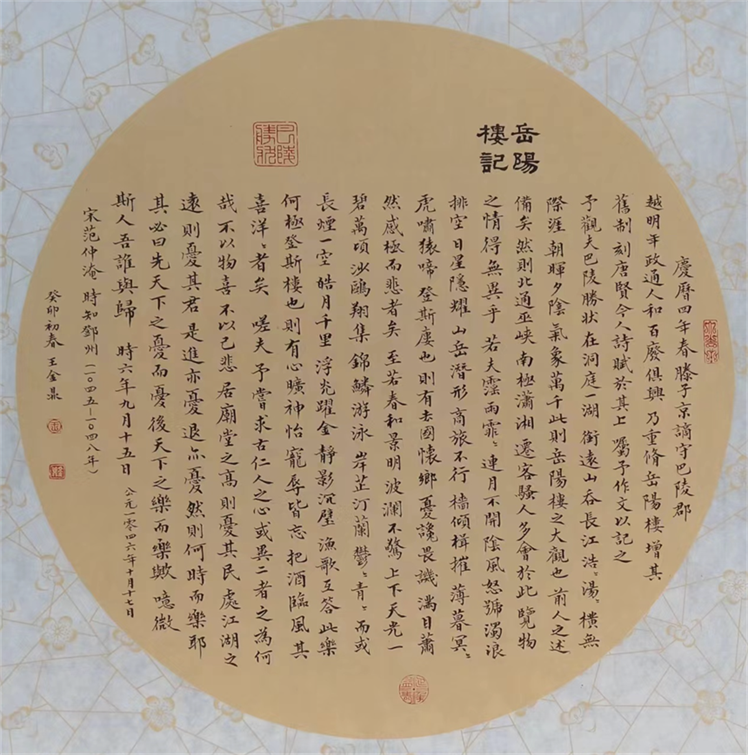 岳陽
樓記
慶曆四年春滕子京謫守巴陵郡
越明年政通人和百廢俱興乃重脩岳陽樓增其
舊制刻唐賢今人詩賦於其上囑予作文以記之
予觀夫巴陵勝狀在洞庭一湖銜遠山吞長江浩〻湯〻橫無
際涯朝暉夕陰氣象萬千此則岳陽樓之大觀也前人之述
備矣然則北通巫峽南極瀟湘遷客騷人多會於此覽物
之情得無異乎若夫霪雨霏〻連月不開陰風怒號濁浪
排空日星隱耀山岳潛形商旅不行檣傾楫摧薄暮冥〻
虎嘯猿啼登斯廔也則有去國懷鄉憂讒畏譏滿目蕭
然感極而悲者矣至若春和景明波瀾不驚上下天光一
碧萬頃沙鷗翔集錦鱗游泳岸芷汀蘭鬱〻青〻而或
長煙一空皓月千里浮光躍金靜影沉璧漁歌互答此樂
何極登斯樓也則有心曠神怡寵辱皆忘把酒臨風其
喜洋〻者矣嗟夫予嘗求古仁人之心或異二者之為何
哉不以物喜不以己悲居廟堂之高則憂其民處江湖之
遠則憂其君是進亦憂退亦憂然則何時而樂耶
其必曰先天下之憂而憂後天下之樂而樂歟噫微
斯人吾誰與歸時六年九月十五日公元一零四六年十月十七日
宋范仲淹時知鄧州(一〇四五—一〇四八年)
癸卯初春王金鼎
巴陵勝狀